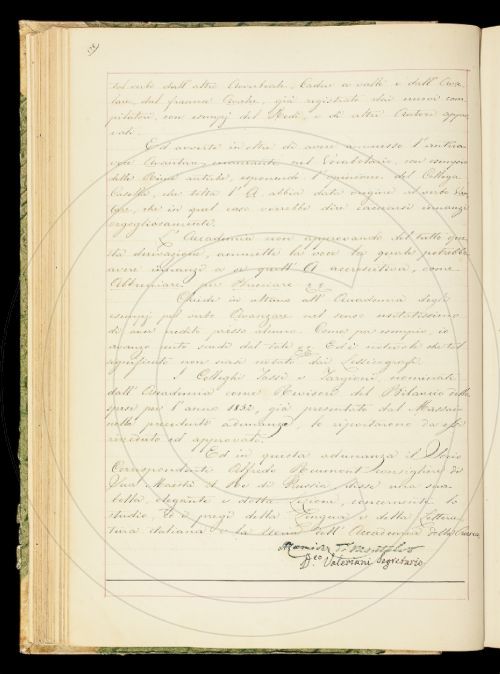 dall'altro Avvolvente. Cader a valle e dall'Ava-
lare, dal francese Avaler, già registrato dai nuovi com-
pilatori, con esempj del Redi, e di altri Autori appro-
vati.
Ed avverte inoltre di avere ammesso l'antica
voce nel Vocabolario, con esempio
delle Rime antiche, esponendo l'opinione del Collega
Casella, che tolta l'A abbia data origine al verbo
che in quel caso varrebbe dire innanzi
orgogliosamente.
L'Accademia non approvando del tutto que-
sta derivazione, ammette la voce la quale potrebbe
avere innanzi a se quell'A accrescitiva, come
Abbruciare per Bruciare &c.
Chiede in ultimo all'Accademia degli
esempj pel verbo Avanzare nel senso usitatissimo
di aver credito presso alcuno. Come per esempio, io
avanzo cento scudi dal tale &c. Ed è notevole che tal
significato non siasi notato dai Lessicografi.
I Colleghi Tassi e Targioni, nominati
dall'Accademia come Revisori del Bilancio delle
spese per l'anno 1852, già presentato dal Massaio
nella precedente adunanza, lo riportarono da essi
riveduto ed approvato.
Ed in questa adunanza il Socio
Corrispondente Alfredo Reumont consigliere di
Sua Maestà il Re di Prussia lesse una
elegante e dotta Lezione, concernente lo
studio, e i pregi della Lingua e della Lettera-
tura italiana e la storia dell'Accademia della Crusca.
D.co Valeriani Segretario